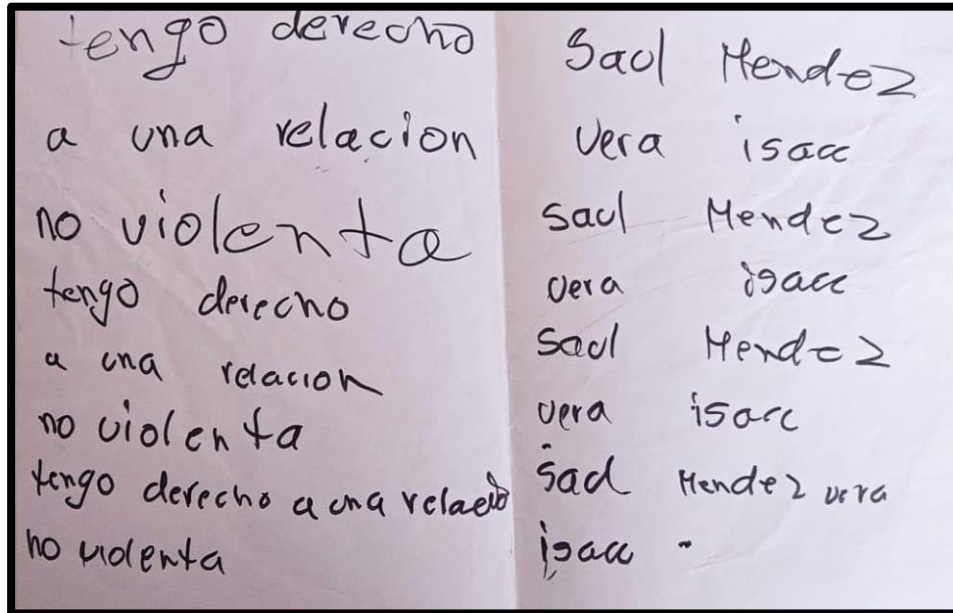 tengo derecho
a una relacion
no violenta
tengo derecho
a una relacion
no violenta
tengo derecho a una relacio
no violenta
Saul Mendez
vera isacc
saul Mendez
vera isacc
saul Mendez
vera isacc
saul Mendez vera
isacc